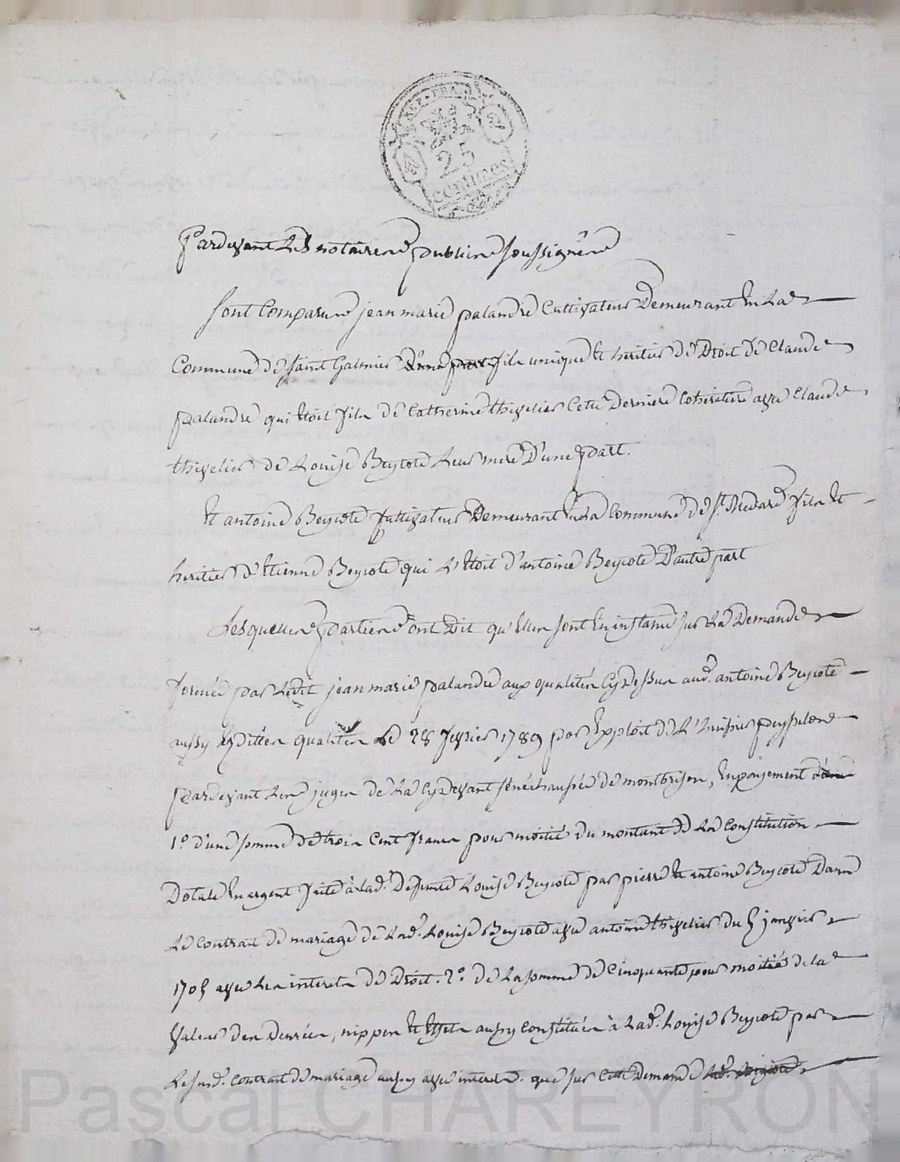 REP. FRA.
25
centimes
Pardevant Les notaires publics soussignés
sont Comparus jean marie palandre Cultivateur Demeurant En La
Commune de Saint Galmier D'une part fils unique & heritier de Droit de Claude
palandre qui Etoit fils de Catherine thevelier Cette Derniere Coheritiere avec Claude
thevelier de Louise Beycote Leur mere D'une part.
Et antoine Beycote Cultivateur Demeurant En La Commune de St. Medard fils Et
heritier d'Etienne Beycote qui L'Etoit d'antoine Beycote D'autre part
Lesquelles parties ont Dit qu'Elles sont En instance sur La Demande
formée par Ledit jean marie palandre aux qualités Cy dessus aud. antoine Beycote
aussy Esdittes qualités Le 28 fevrier 1789 par Exploit de L'huissier
pardevant Les juges de La Cydevant sénéchaussée de montbrison, En payement
1° d'une somme de trois Cent francs pour moitié du montant de La Constitution
Dotale En argent faite à Lad. Defunte Louise Beycote par pierre & antoine Beycote Dans
Le Contrat de mariage de Lad. Louise Beycote avec antoine thevelier du 5 janvier
1705 avec Les interets de Droit. 2° de La somme de Cinquante pour moitié de la
Valeur des Denrées, nippes & Effets aussy Constitués à Lad. Louise Beycote par
Le susd. Contrat de mariage aussy avec interets. que sur Cette Demande
Pascal CHAREYRON